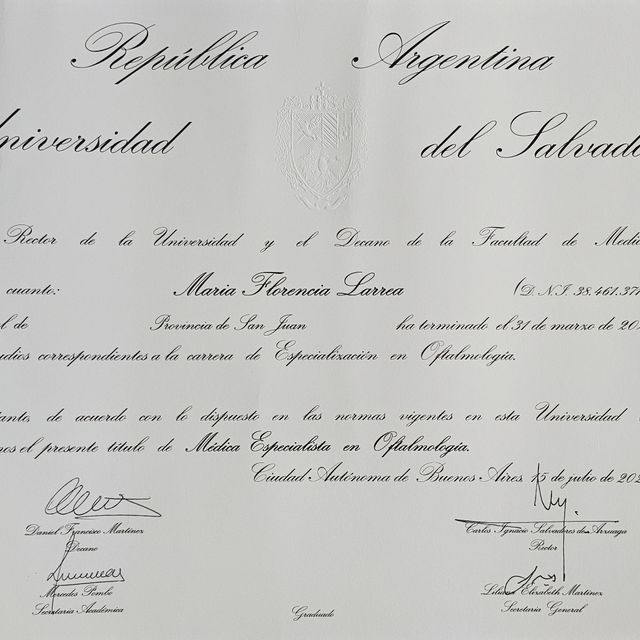 República Argentina
Universidad del Salvador
Rector de la Universidad y el Decano de la Facultad de Medi
cuanto: Maria Florencia Larrea (D.N.I. 38.461.371
l de Provincia de San Juan ha terminado el 31 de marzo de 20
udios correspondientes a la carrera de Especialización en Oftalmología.
tanto de acuerdo con lo dispuesto en las normas vigentes en esta Universidad
mos el presente título de Médica Especialista en Oftalmología.
Ciudad Autónoma de Buenos Aires 15 de julio de 202
Daniel Francisco Martínez Carlos Ignacio Salvadores de Arzuaga
Decano Rector
Mercedes Pombo Liliana Elizabeth Martínez
Secretaria Académica Secretaria General
Graduado